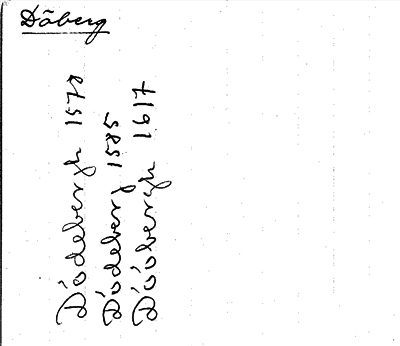 Döberg
Dödebergh 1578
Dödeberg 1585
Dööbergh 1617